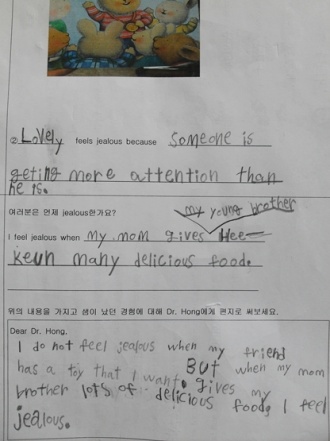 ② Lovely feels jealous because someone is
geting more attention than
he is.
여러분은 언제 jealous한가요?
my young brother
I feel jealous when my mom gives Hee
keun many delicious food.
위의 내용을 가지고 샘이 났던 경험에 대해 Dr. Hong에게 편지로 써보세요.
Dear Dr. Hong,
I do not feel jealous when my friend
has a toy that I want. But when my mom
gives my
brother lots of delicious food, I feel
jealous.